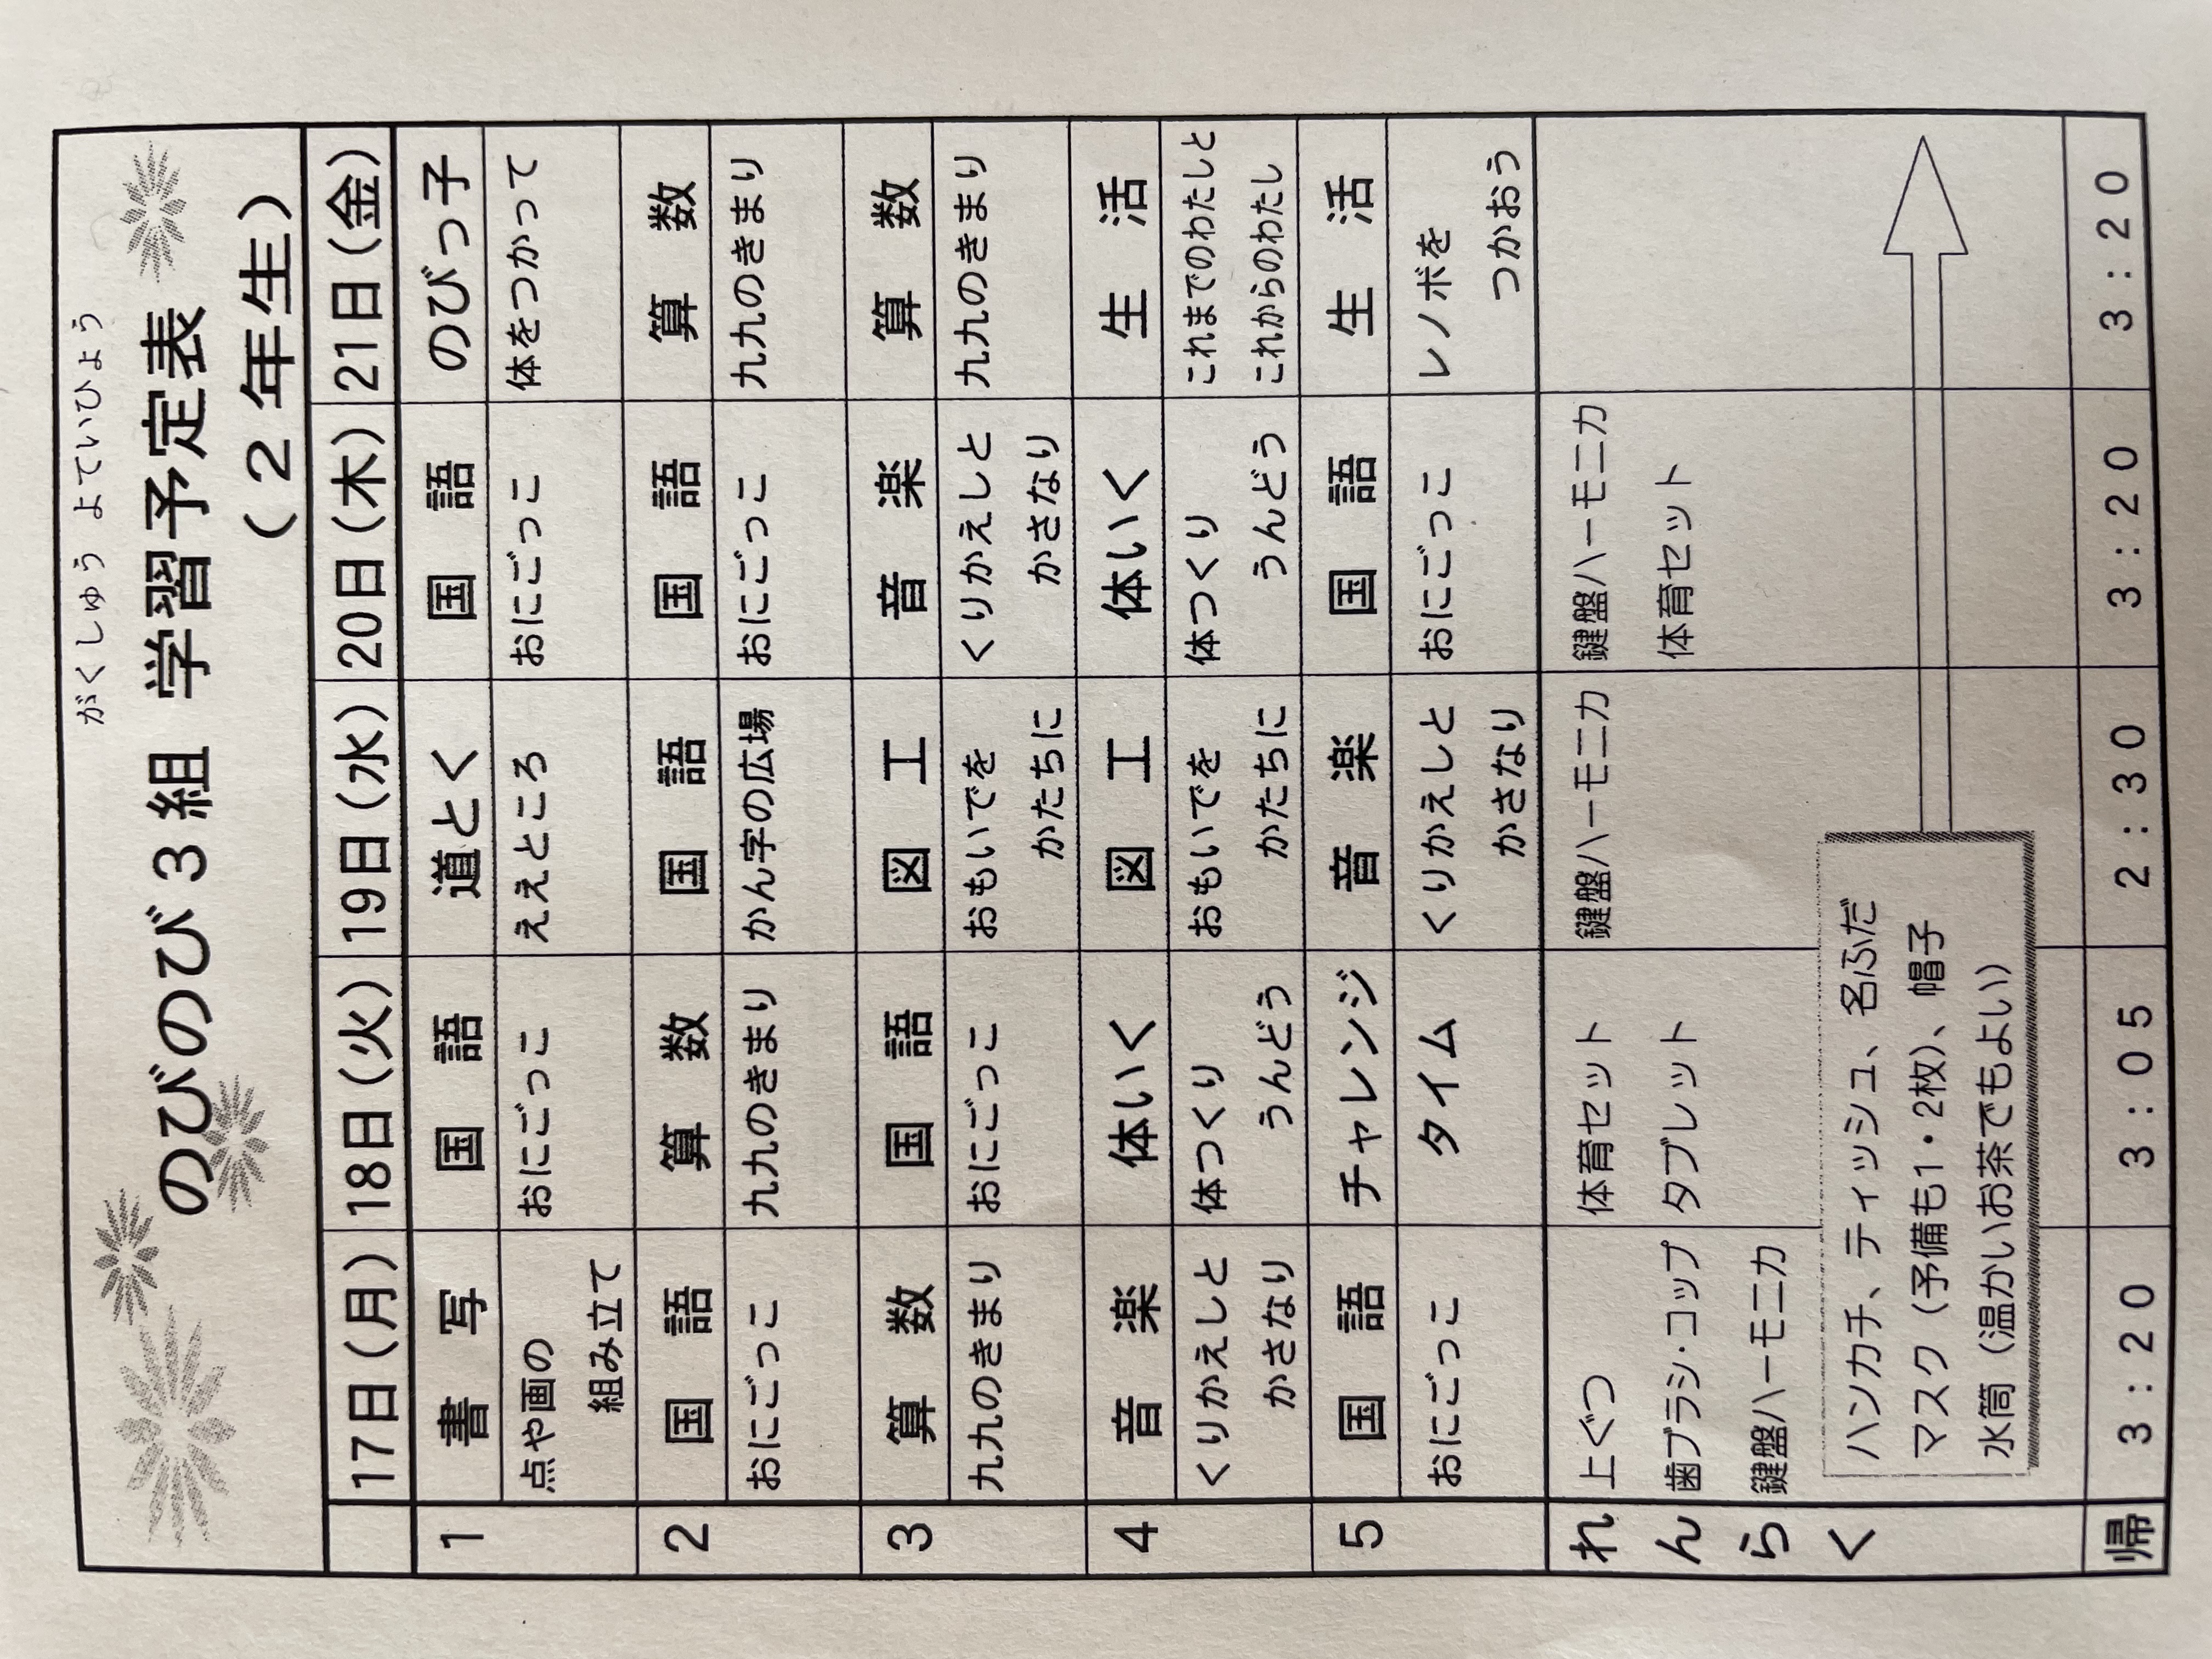 がくしゅう よていひょう
のびのび３組 学習予定表
（２年生）
17日（月） 18日（火） 19日（水） 20日（木） 21日（金）
1 書写 国語 道とく 国語 のびっ子
点や画の おにごっこ ええところ おにごっこ 体をつかって
組み立て
2 国語 算数 国語 国語 算数
おにごっこ 九九のきまり かん字の広場 おにごっこ 九九のきまり
3 算数 国語 図工 音楽 算数
九九のきまり おにごっこ おもいでを くりかえしと 九九のきまり
かたちに かさなり
4 音楽 体いく 図工 体いく 生活
くりかえしと 体つくり おもいでを 体つくり これまでのわたしと
かさなり うんどう かたちに うんどう これからのわたし
5 国語 チャレンジ 音楽 国語 生活
おにごっこ タイム くりかえしと おにごっこ レノボを
かさなり つかおう
れんらく
上ぐつ 体育セット 鍵盤ハーモニカ 鍵盤ハーモニカ
歯ブラシ・コップ タブレット 体育セット
鍵盤ハーモニカ
ハンカチ、ティッシュ、名ふだ
マスク（予備も1・2枚）、帽子
水筒（温かいお茶でもよい）
帰 3：20 3：05 2：30 3：20 3：20